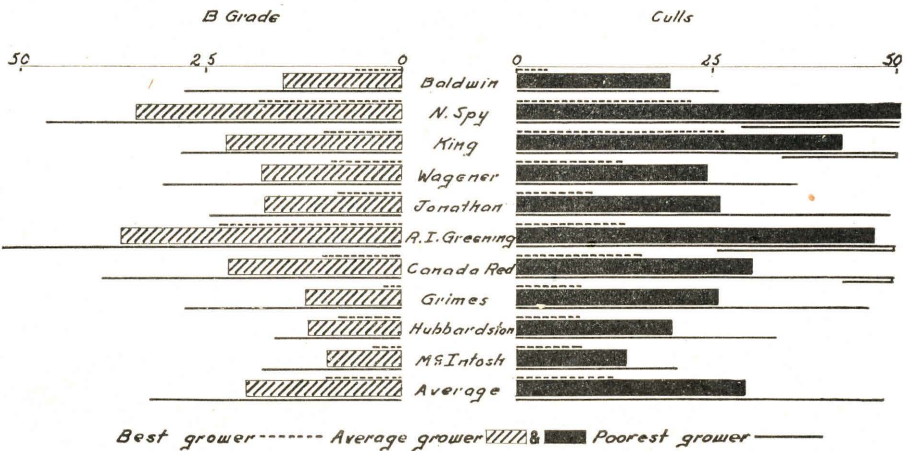 B Grade Culls
50 25 0 0 25 50
Baldwin
N. Spy
King
Wagener
Jonathan
R.I. Greening
Canada Red
Grimes
Hubbardston
McIntosh
Average
Best grower Average grower & Poorest grower